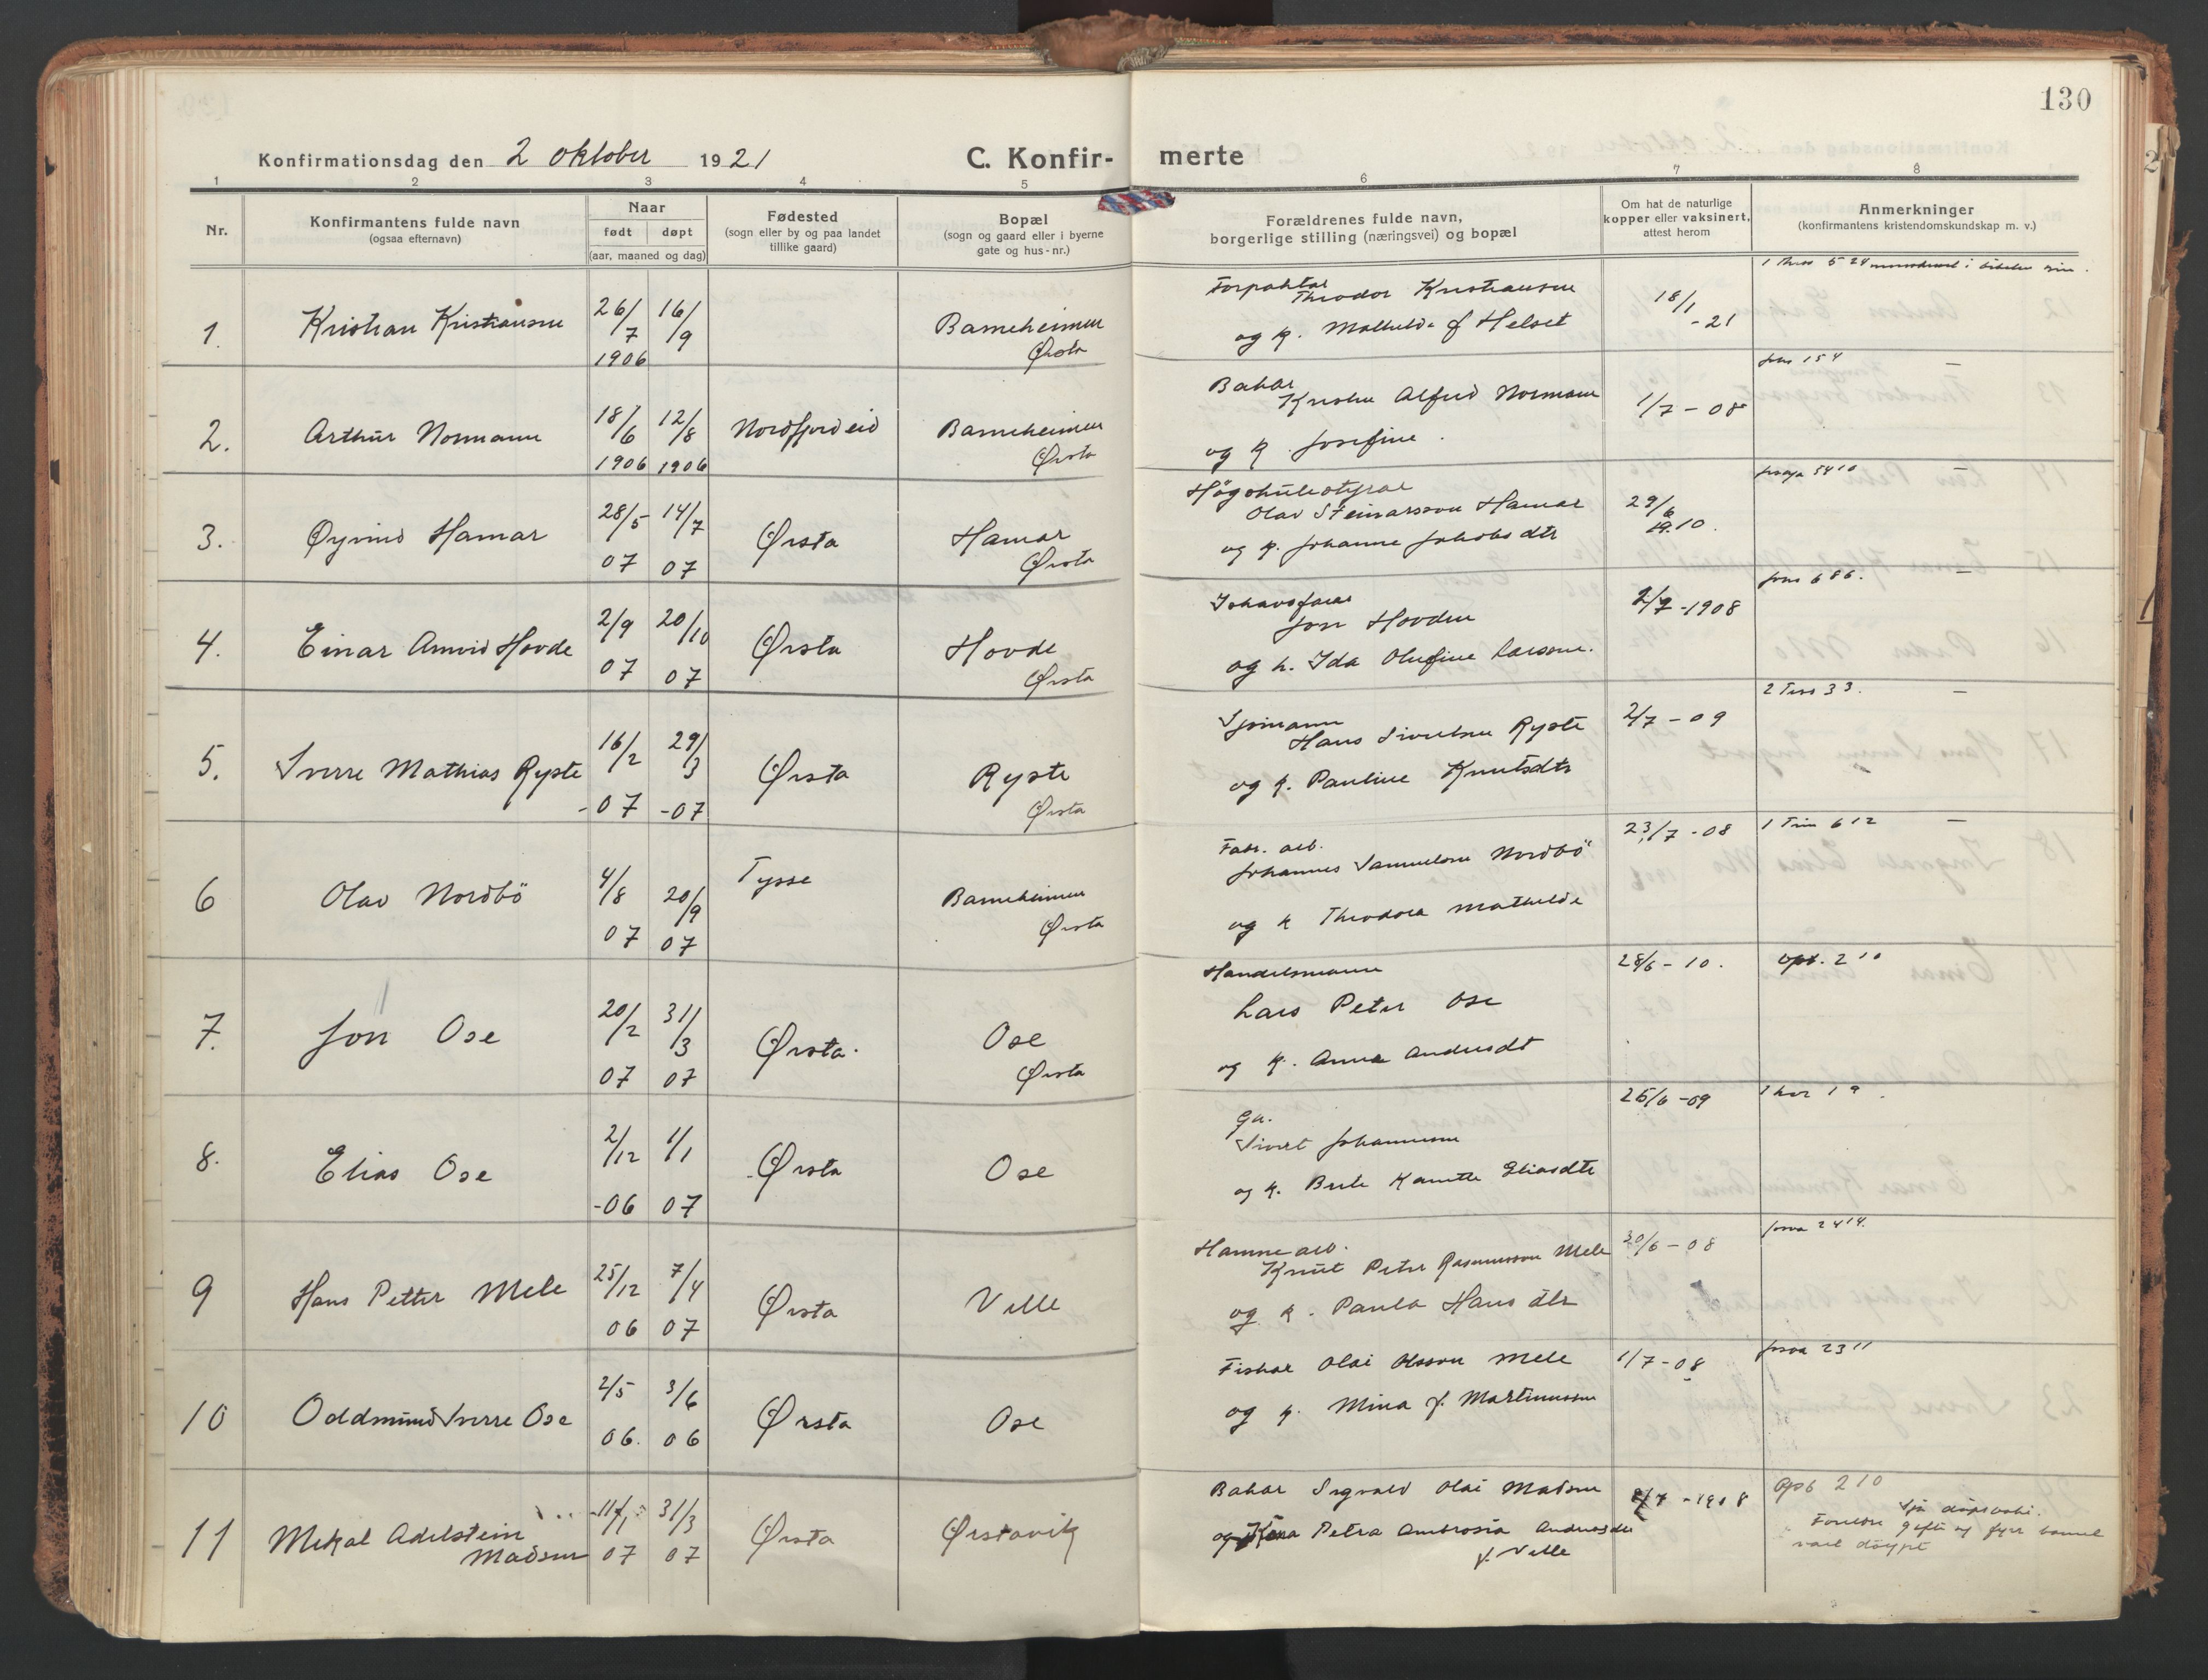 130
Konfirmationsdag den 2 oktober 1921
C. Konfir- merte
1 2 3 4 5 6 7 8
Nr.
Konfirmantens fulde navn
(ogsaa efternavn)
Naar
født døpt
(aar, maaned og dag)
Fødested
(sogn eller by og paa landet
tillike gaard)
Bopæl
(sogn og gaard eller i byerne
gate og hus-nr.)
Forældrenes fulde navn,
borgerlige stilling (næringsvei) og bopæl
Om hat de naturlige
kopper eller vaksinert,
attest herom
Anmerkninger
(konfirmantens kristendomskundskap m. v.)
1. Kristian Kristiansen
26/7 1906 16/9
Barneheimen
Ørsta
Forpaktar
Theodor Kristiansen
og k. Mathilde f Helset
18/1 -21
1 5 24
2. Arthur Normann
18/6 1906 12/8 1906
Nordfjordeid
Barneheimen
Ørsta
Bakar
Kristen Alfred Normann
og k Josefine.
1/7 - 08
Joh 15 4 -
3. Øyvind Hamar
28/5 07 14/7 07
Ørsta
Hamar
Ørsta
Høgskulestyrar
Olav Steinarsson Hamar
og k. Johanne Jakobsdtr
29/6 1910.
Jesaja 54 10
4. Einar Arnvid Hovde
2/9 07 20/10 07
Ørsta
Hovde
Ørsta
Ishavsfarar
Jon Hovden
og k. Ida Olufine Larssen.
2/7 - 1908
Joh 6 86. -
5. Sverre Mathias Ryste
16/2 -07 29/3 -07
Ørsta
Ryste
Ørsta
Sjømann
Hans Sivertsen Ryste
og k. Pauline Knutsdtr
2/7 - 09
2 Tess 3 3. -
6 Olav Nordbö
4/8 07 20/9 07
Tysse
Barneheimen
Ørsta
Fabr. arb.
Johannes Samuelsen Nordbö
og k Theodora Mathilde
23/7 - 08
1 Tim 6 12 -
7. Jon Ose
20/2 07 31/3 07
Ørsta.
Ose
Ørsta
Handelsmann
Lars Peter Ose
og k. Anna Andersdt
28/6 - 10.
Opb. 2 10
8. Elias Ose
2/12 -06 1/1 07
Ørsta
Ose
Ga.
Sivert Johannessen
og k. Berte Kamille Eliasdtr
25/6 - 09
1 kor 1 9.
9 Hans Petter Mele
25/12 06 7/4 07
Ørsta
Velle
Hamnearb.
Knut Peter Rasmusson Mele
og k. Paula Hansdtr
30/6 - 08
Josva 24 14.
10 Oddmund Sverre Ose
2/5 06. 3/6 06
Ørsta
Ose
Fiskar Olai Olsson Mele
og k. Mina f. Martinussen
1/7 - 08
Josva 23 11
11 Mikal Adelstein
Madsen
11/1 07 31/3 07
Ørsta
Ørstavik
Bakar Sigvald Olai Madsen
og Kona Petra Ambrosia Andersdtr
f. Velle
2/7 - 1908
Opb 2 10
Sjå dåpsboki.
Foreldre gifte og fyrr barnet
vart döypt